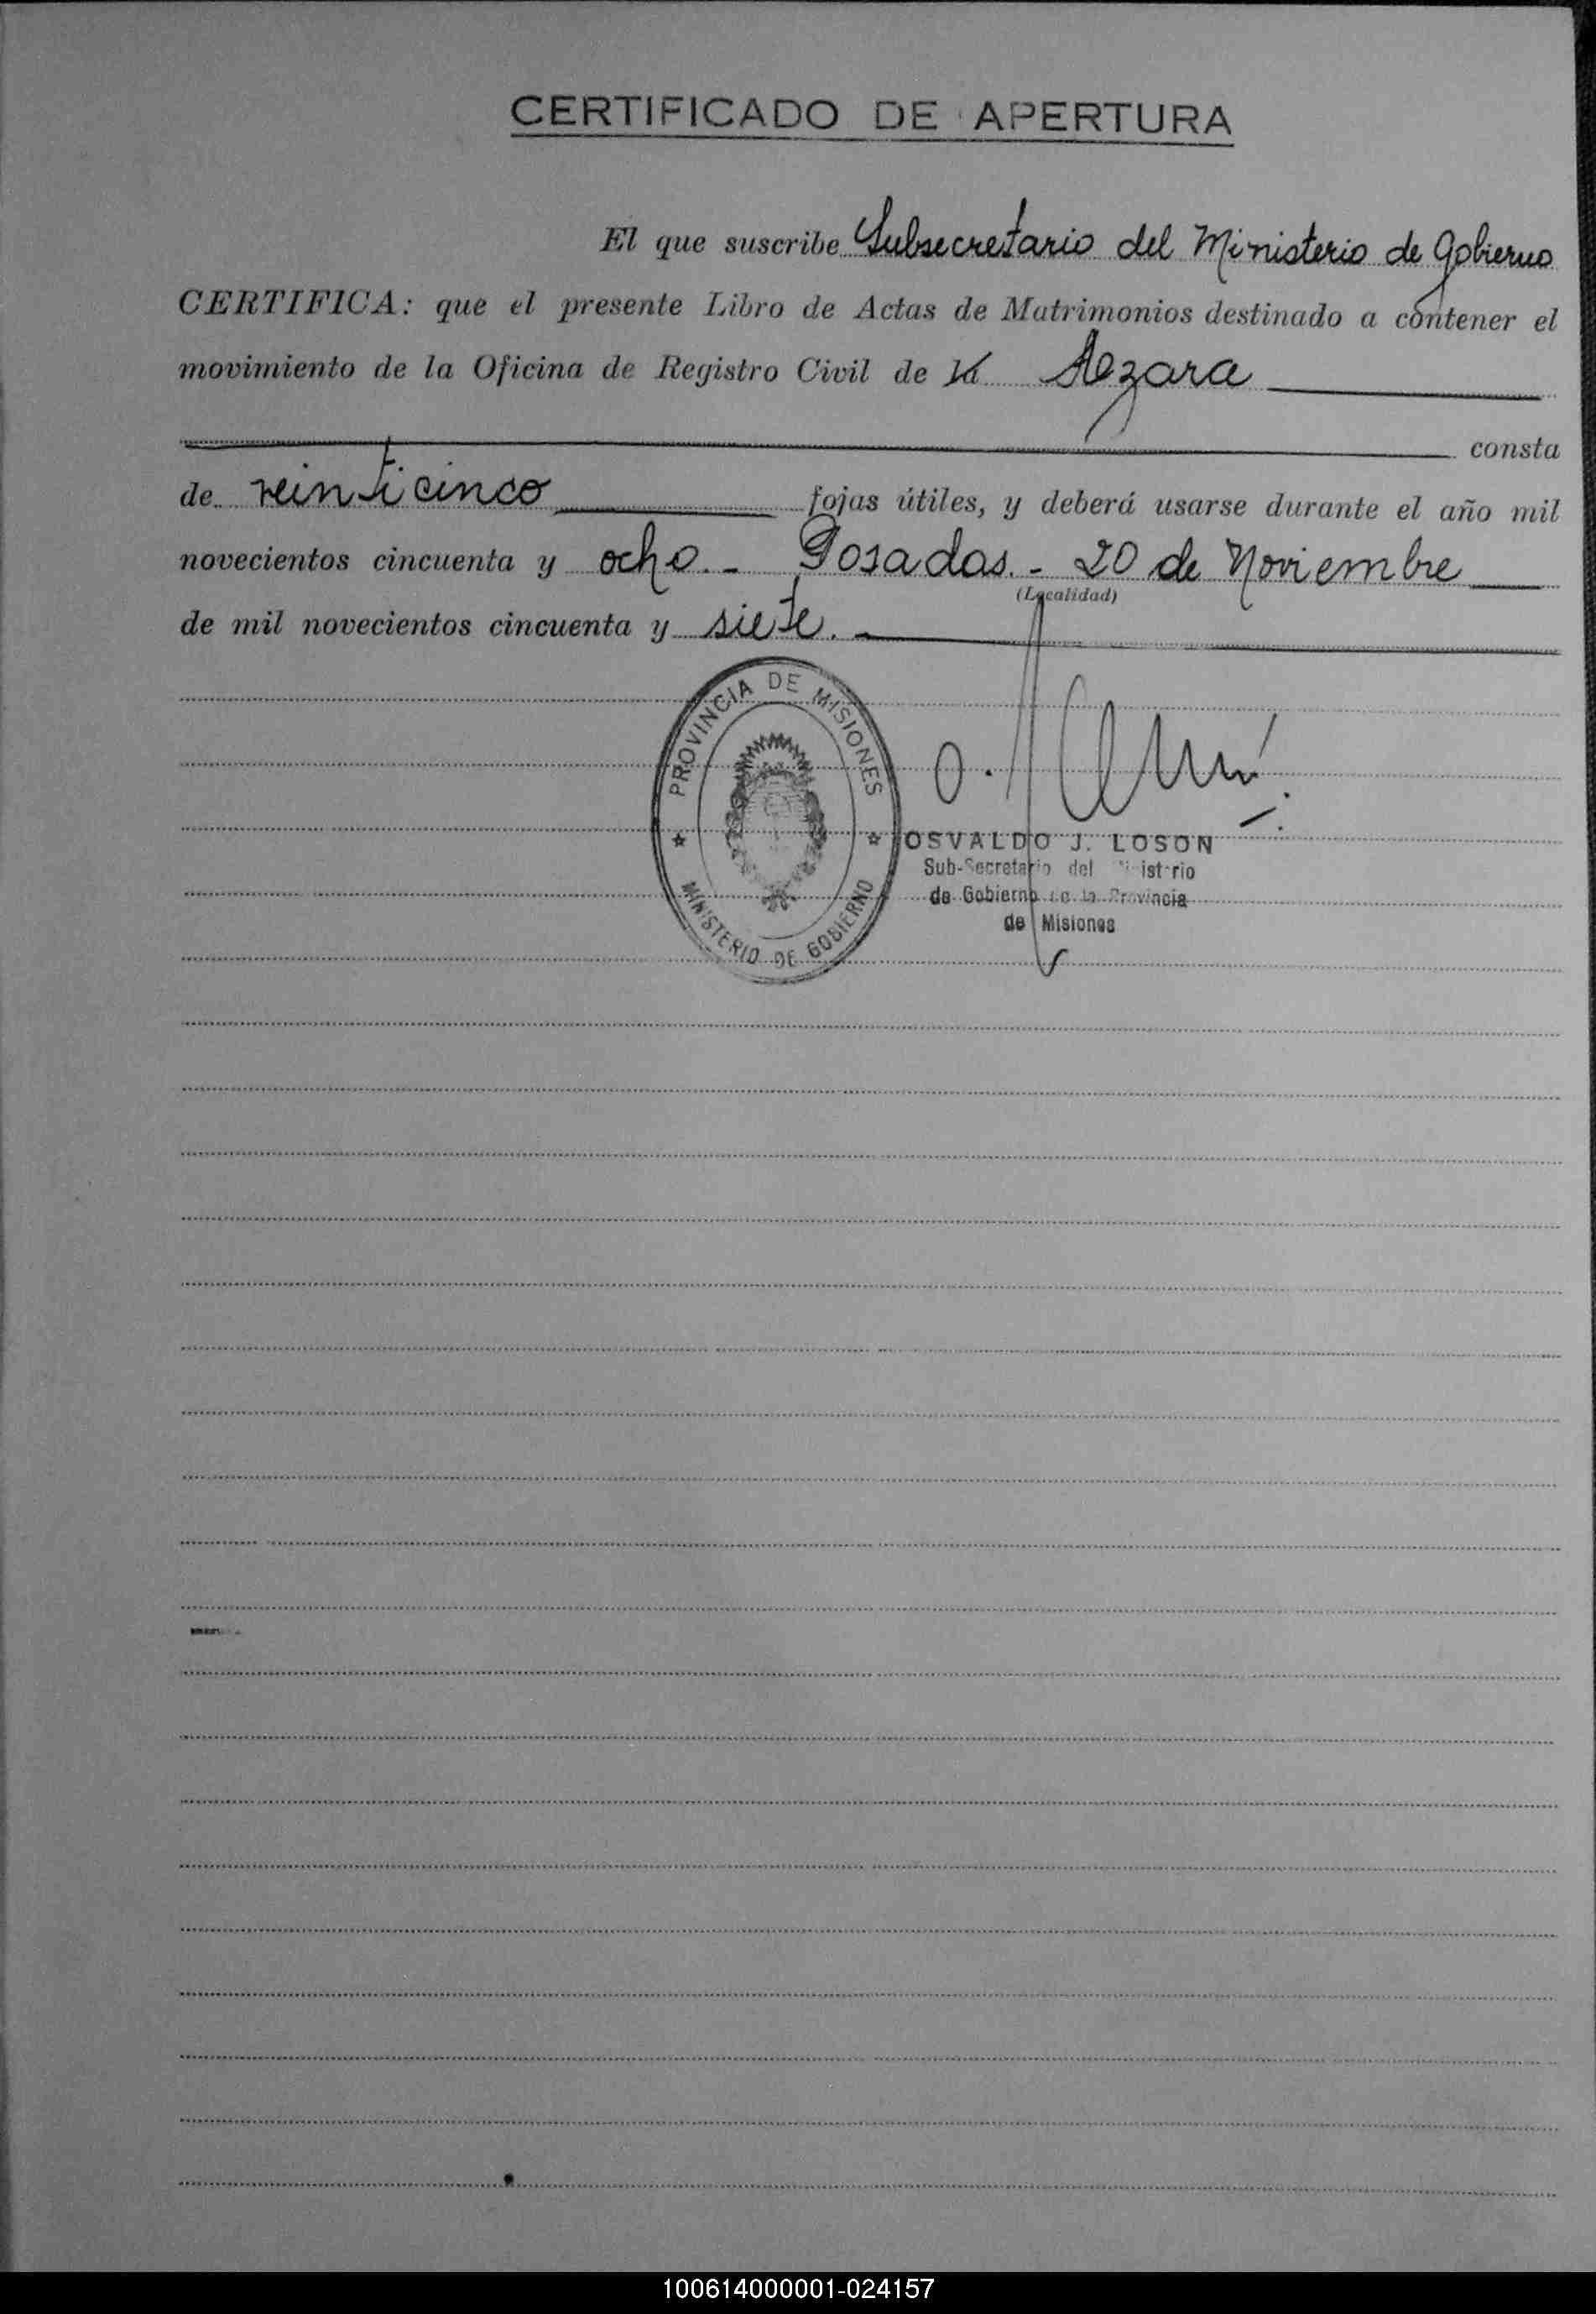 CERTIFICADO DE APERTURA
El que suscribe Subsecretario del Ministerio de Gobierno
CERTIFICA: que el presente Libro de Actas de Matrimonios destinado a contener el
movimiento de la Oficina de Registro Civil de la Azara
consta
de veinticinco fojas útiles, y deberá usarse durante el año mil
novecientos cincuenta y ocho.- Posadas.- 20 de Noviembre
(Localidad)
de mil novecientos cincuenta y siete.
PROVINCIA DE MISIONES
MINISTERIO DE GOBIERNO
OSVALDO J. LOSON
Sub-Secretario del Ministerio
de Gobierno de la Provincia
de Misiones
100614000001-024157